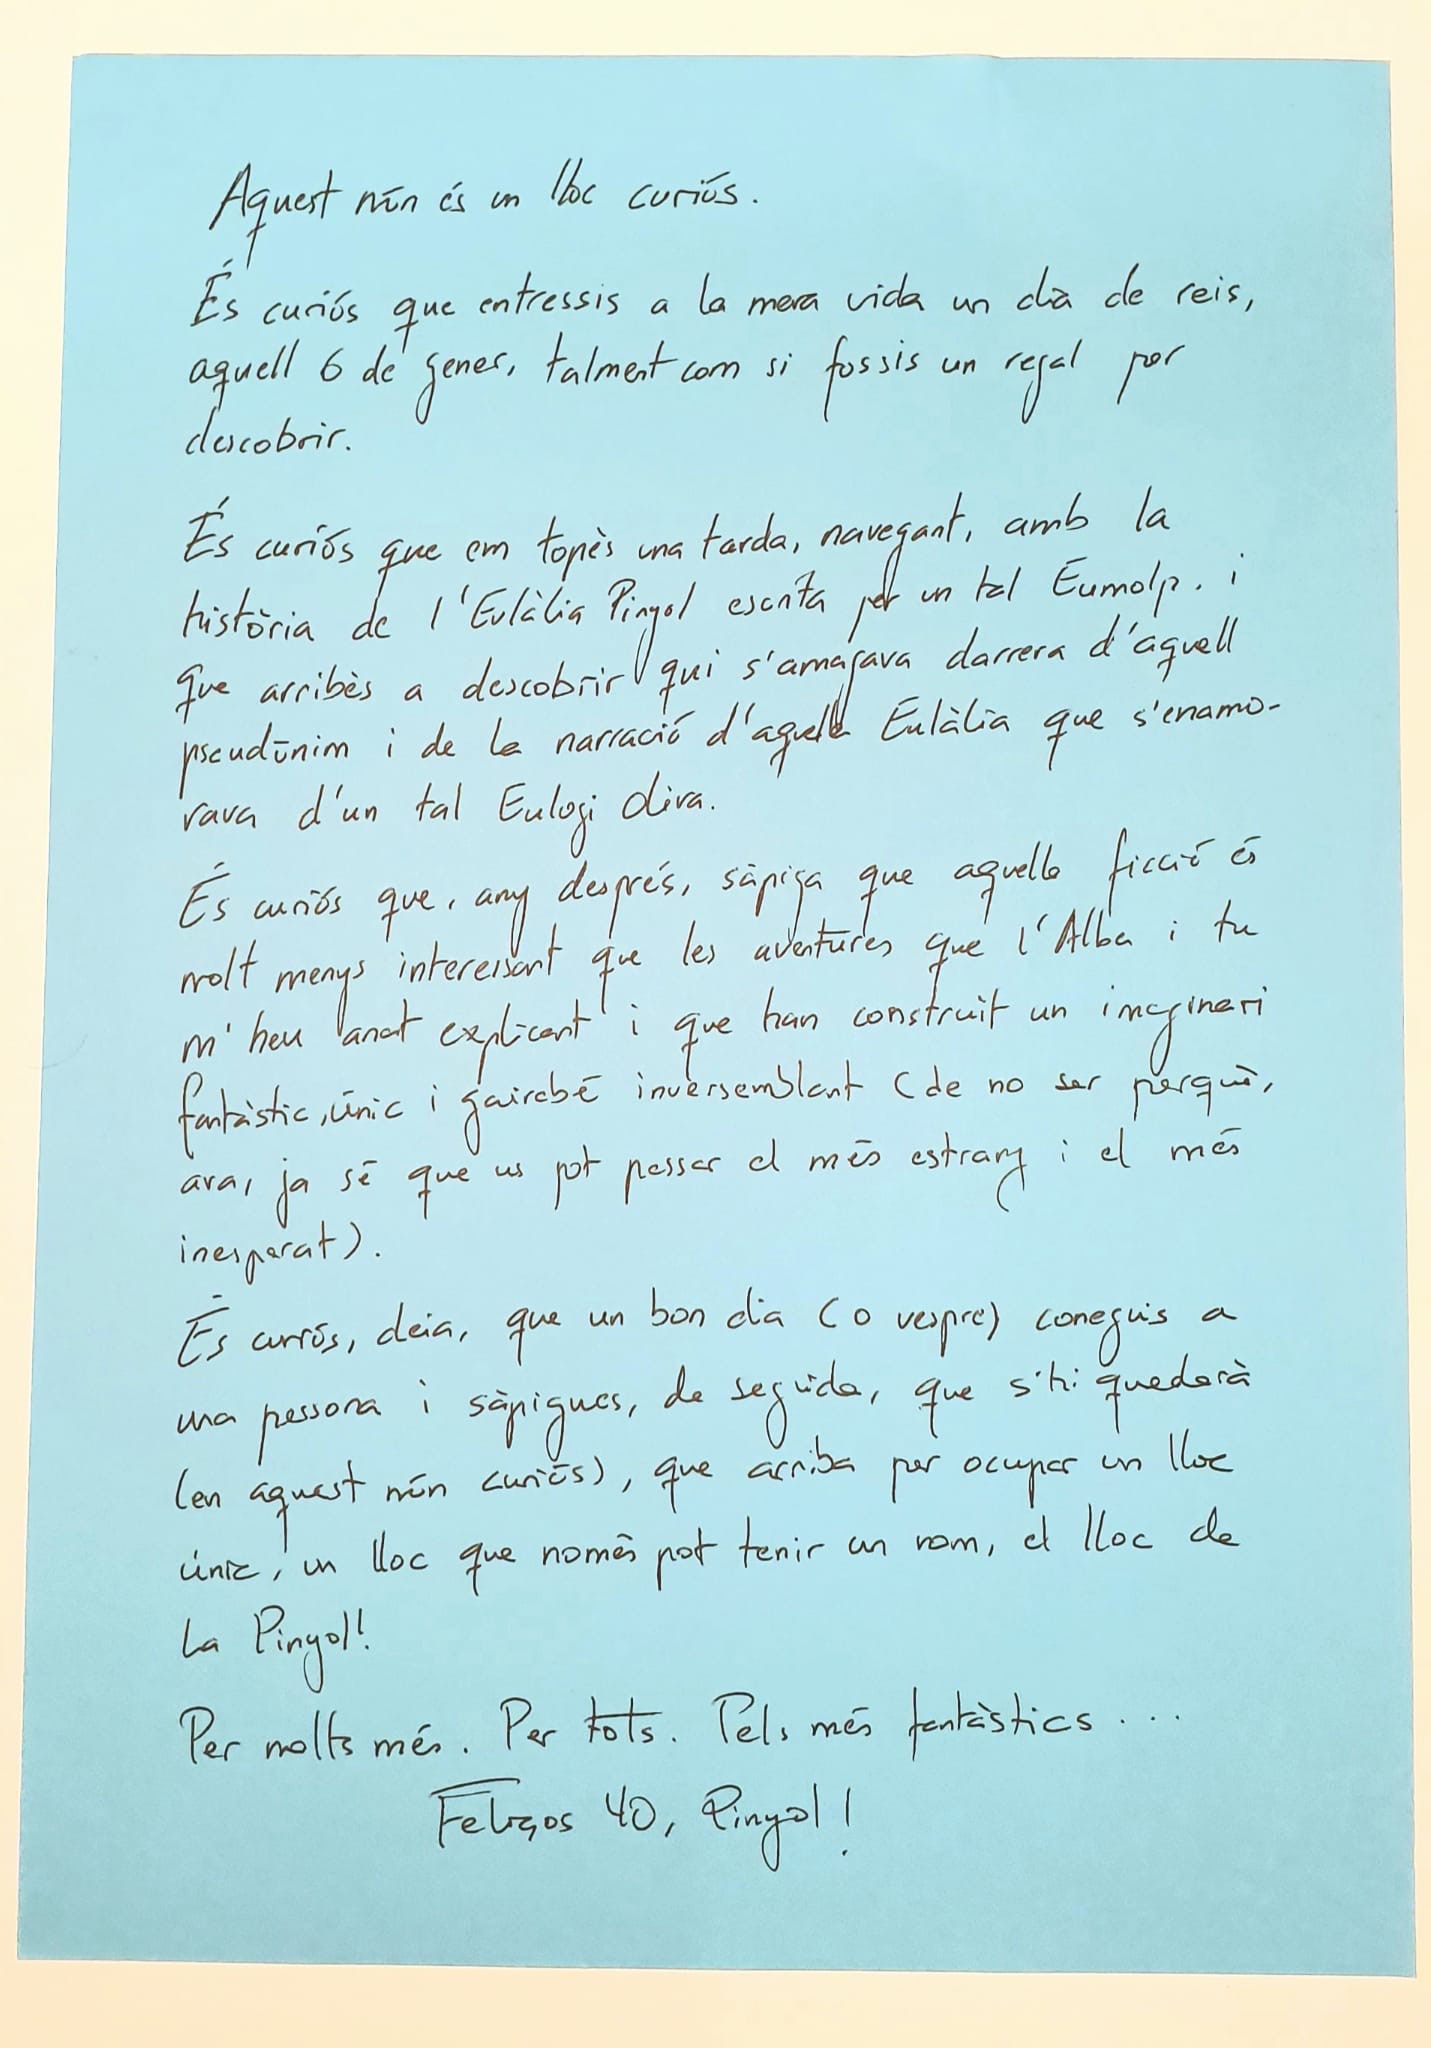 Aquest món és un lloc curiós.
És curiós que entressis a la meva vida un dia de reis,
aquell 6 de gener, talment com si fossis un regal per
descobrir.
És curiós que em topés una tarda, navegant, amb la
història de l'Eulàlia Pinyol escrita per un tal Eumolp. i
que arribés a descobrir qui s'amagava darrera d'aquell
pseudònim i de la narració d'aquella Eulàlia que s'enamo-
rava d'un tal Eulogi Oliva.
És curiós que, any després, sàpiga que aquella ficció és
molt menys interessant que les aventures que l'Alba i tu
m'heu anat explicant i que han construït un imaginari
fantàstic, únic i gairebé inversemblant (de no ser perquè,
ara, ja sé que us pot passar el més estrany i el més
inesperat).
És curiós, deia, que un bon dia (o vespre) coneguis a
una persona i sàpigues, de seguida, que s'hi quedarà
(en aquest món curiós), que arriba per ocupar un lloc
únic, un lloc que només pot tenir un nom, el lloc de
La Pinyol!
Per molts més. Per tots. Pels més fantàstics ...
Feliços 40, Pinyol!